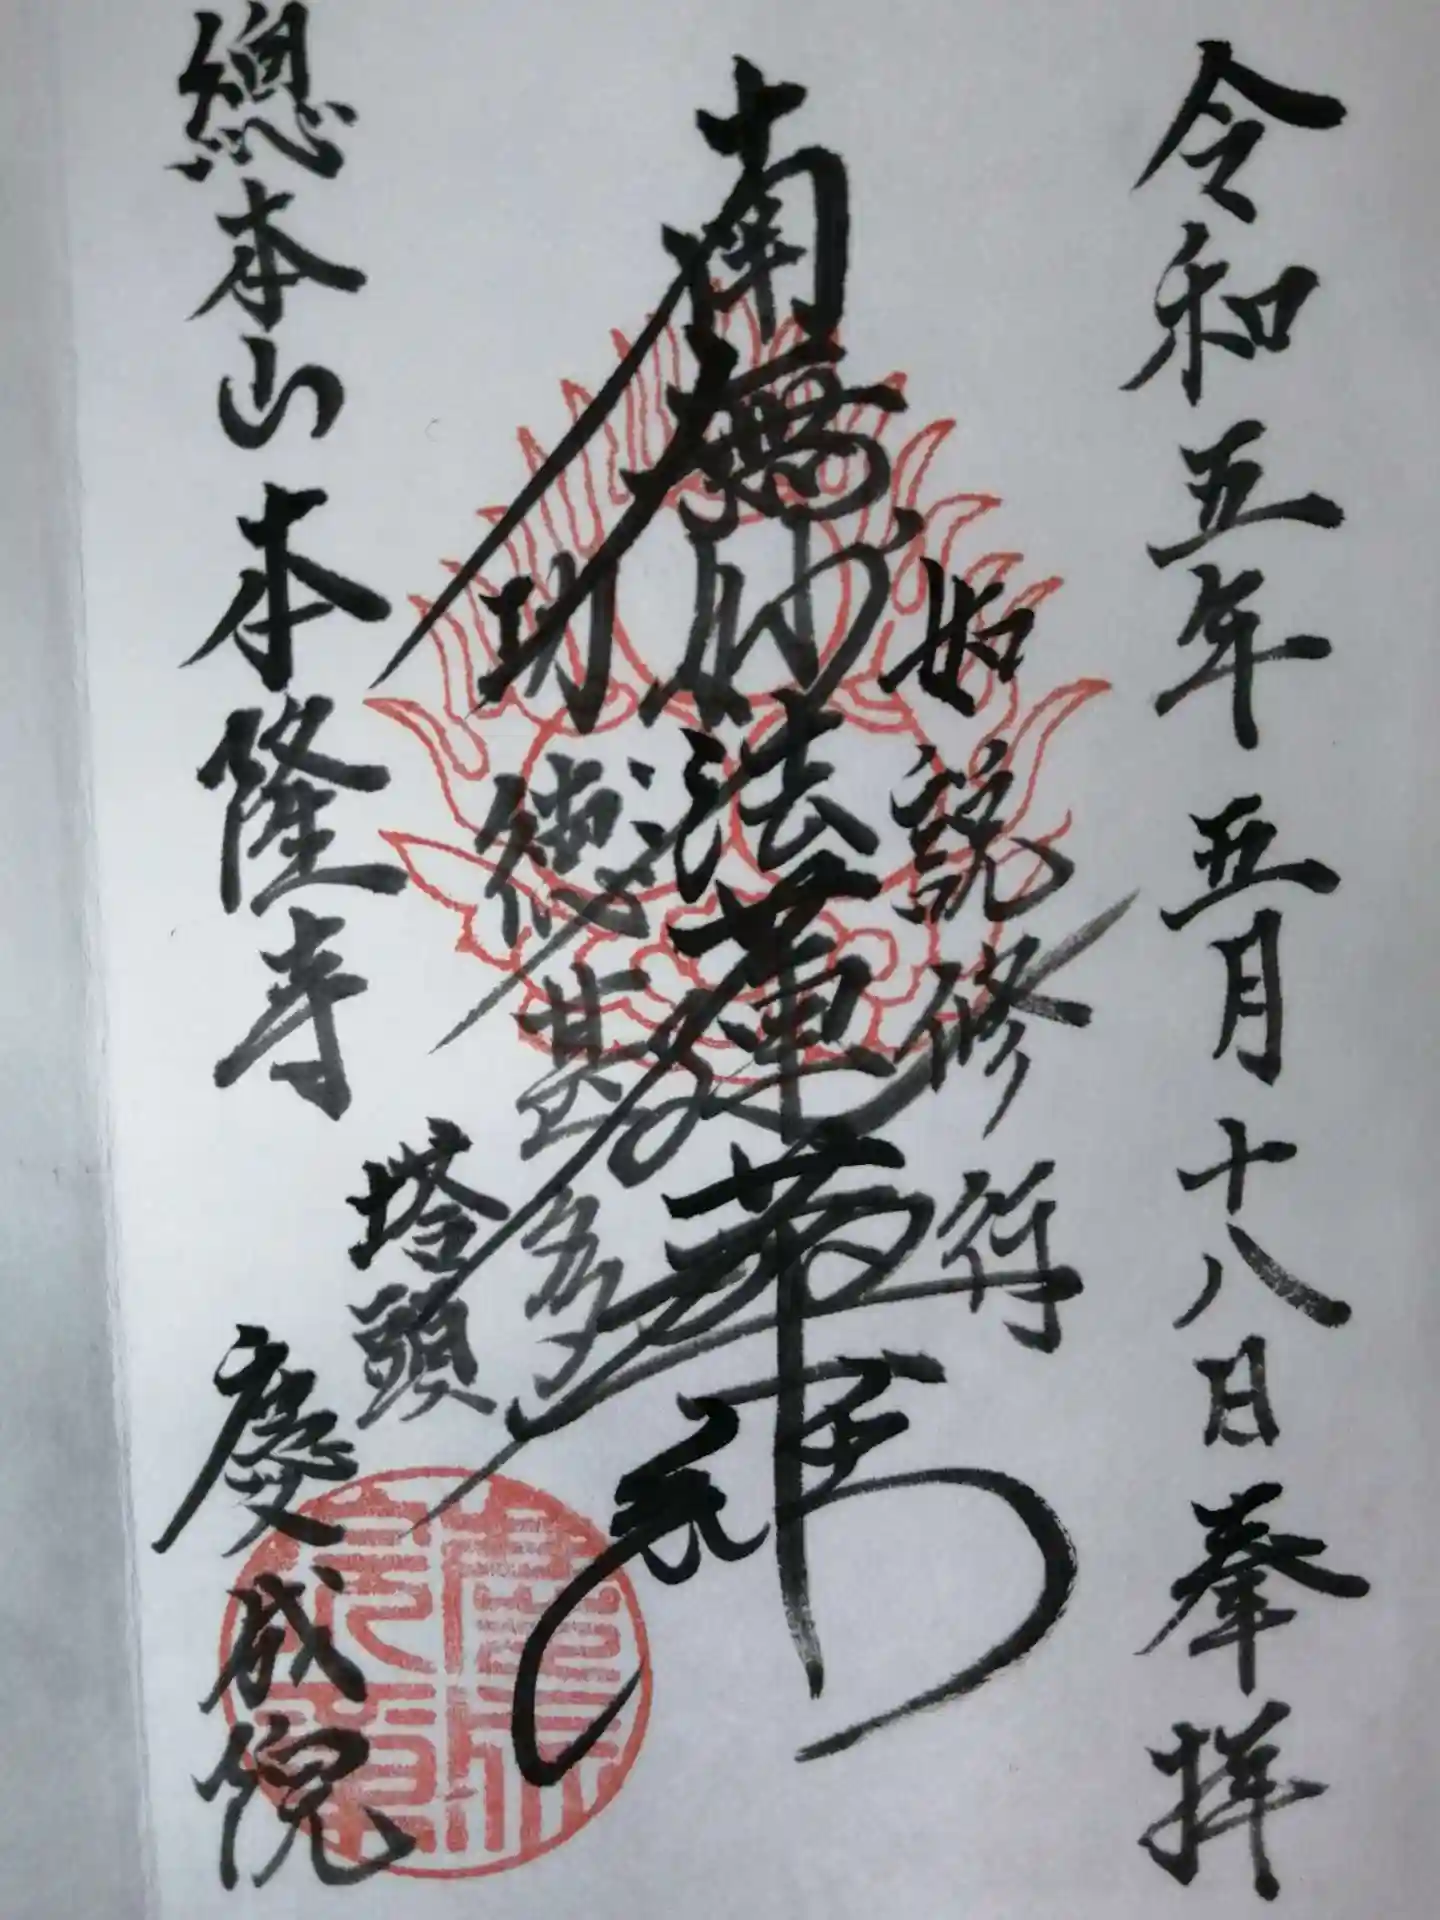 令和五年五月十八日奉拝
如説修行
南無妙法蓮華経
功徳甚多
總本山本隆寺
塔頭
慶成院